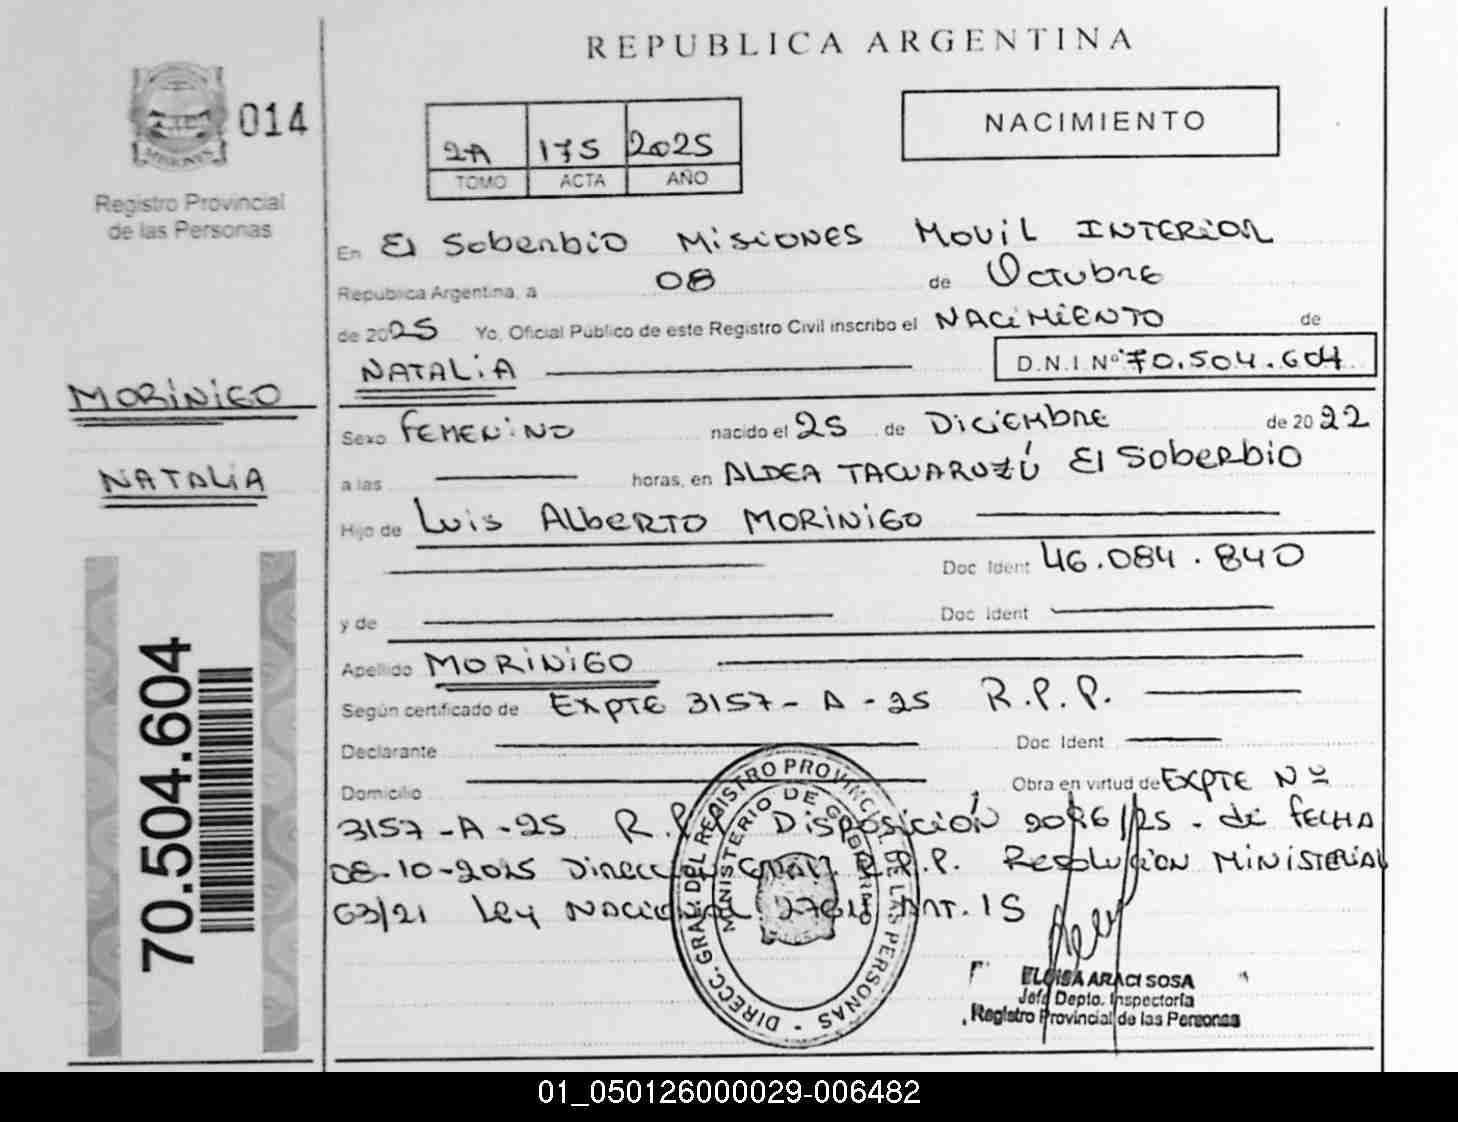 REPUBLICA ARGENTINA
014
MISIONES
Registro Provincial
de las Personas
2A 175 2025
TOMO ACTA AÑO
NACIMIENTO
En El Soberbio Misiones Movil INTERIOR
República Argentina, a 08 de Octubre
de 2025 Yo, Oficial Público de este Registro Civil inscribo el NACIMIENTO de
NATALIA D.N.I. Nº 70.504.604
MORINIGO
NATALIA
Sexo FEMENINO nacido el 25 de Diciembre de 2022
a las horas, en ALDEA TACUARUZÚ El Soberbio
Hijo de Luis Alberto MORINIGO
Doc Ident 46.084.840
y de Doc Ident
Apellido MORINIGO
Según certificado de EXPTE 3157-A-25 R.P.P.
Declarante Doc Ident
Domicilio Obra en virtud de EXPTE Nº
3157-A-25 R.P.P. Disposición 25 - de FECHA
08-10-2025 Dirección Gral. R.P.P. Resolución MINISTERIAL
63/21 Ley Nacional Art. 15
70.504.604
DIRECC. GRAL. DEL REGISTRO PROVINCIAL DE LAS PERSONAS
MINISTERIO DE GOBIERNO
ELOISA ARACI SOSA
Jefa Depto. Inspectoría
Registro Provincial de las Personas
01_050126000029-006482